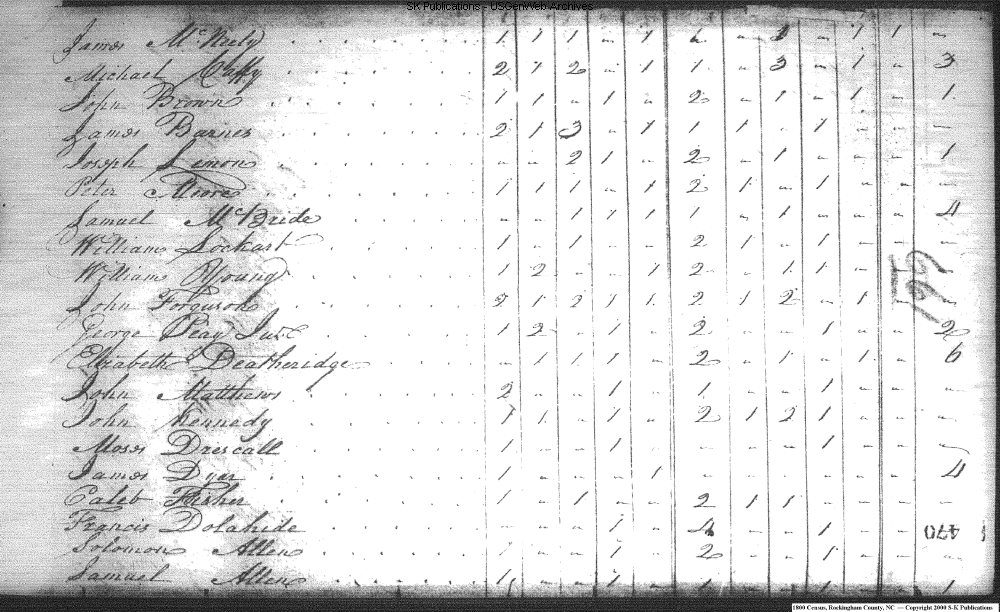 SK Publications - USGenWeb Archives
James McNeely 1 1 1 " 1 1 " 1 " 1 1 "
Michael Caffy 2 1 2 " 1 1 " 3 " 1 " 3
John Brown 1 1 " 1 " 2 " 1 " 1 " 1
James Barnes 2 1 3 " 1 1 1 " 1 " " "
Joseph Lemon " " 2 1 " 2 " 1 " " " 1
Peter Moore 1 1 1 " 1 2 1 " 1 " " "
Samuel McBride " " 1 1 1 1 " 1 " " " 4
William Lockart 1 " 1 " " 2 1 " 1 " " "
William Young 1 2 " " 1 2 " 1 1 " " 1
John Ferguson 2 1 2 1 1 2 1 2 " 1 " 1
George Peay Junr 1 2 " 1 " 2 " " 1 " " 2
Elizabeth Deatheridge " 1 1 1 " 2 " 1 " 1 " 6
John Matthews 2 " " 1 " 1 " " 1 " " "
John Kennedy 1 1 " 1 " 2 1 2 1 " " "
Moses Drescall 1 " " 1 " " " " 1 " "
James Dyer 1 " " " 1 " " " " " " 4
Caleb Fisher 1 " 1 " " 2 1 1 " " " "
Francis Dolahide " " " 1 " 4 " " 1 " "
470
Solomon Allen " " 1 " 2 " " 1 " "
Samuel Allen 1 " " 1 "
1800 Census, Rockingham County, NC — Copyright 2000 S-K Publications